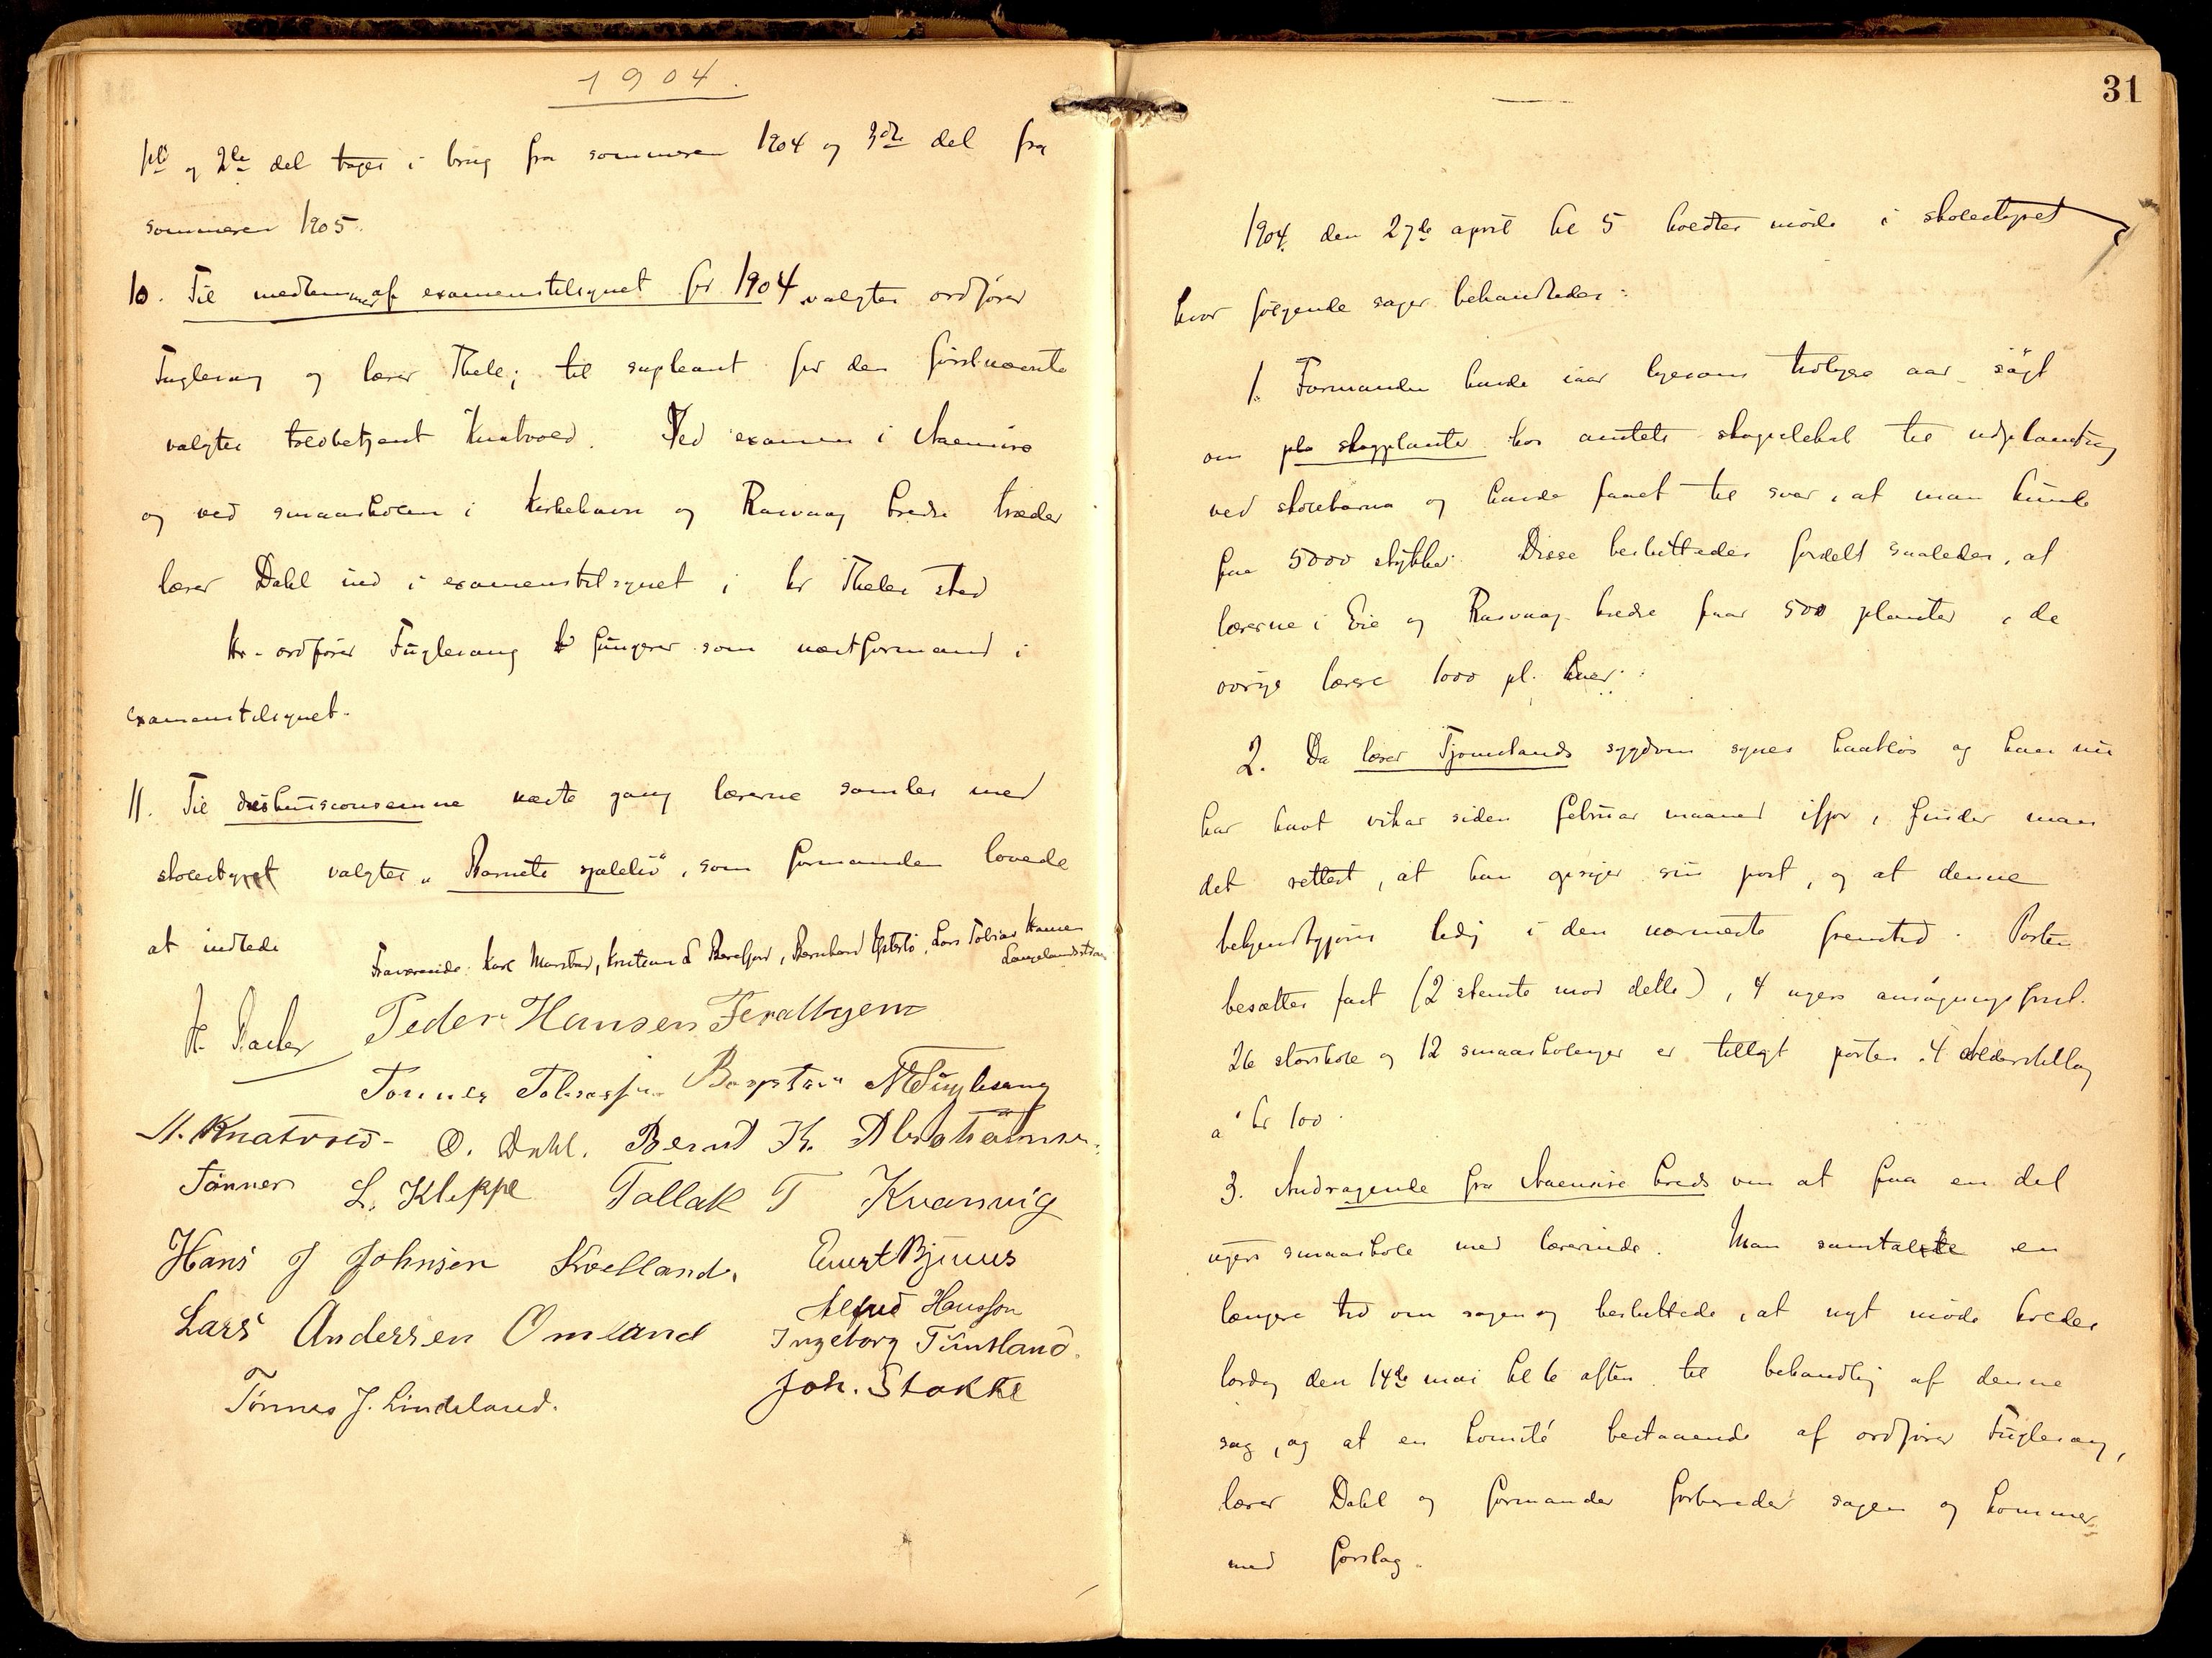 1904.
1ste og 2den del tages i brug fra sommeren 1904 og 3die del fra
sommeren 1905.
10. Til medlemmer af examenstilsynet for 1904 valgtes ordfører
Fuglevang og lærer Thele; til supleant for den førstnævnte
valgtes toldbetjent Knatvold. Ved examen i Naenvire
og ved smaaskolen i Kirkehavn og Rasvaag kreds træder
lærer Dahl ind i examenstilsynet i hr Theles sted
Hr. ordfører Fuglevang fungerer som næstformand i
examenstilsynet.
11. Til diskussionsemne næste gang lærerne samles med
skolestyret valgtes „Barnets sjæleliv", som formanden lovede
at indlede
Fraværende: Karl Marstad, Bernhard, Lars Tobias Hansen
Peder Hansen
Tønnes Tobiassen Fuglevang
Knatvold - O. Dahl. Bernt K. Abrahamsen.
Tønnes L. Kleppe Tallak T Kvanvig
Hans J Johnsen Kvelland, Enert Bjunes
Alfred Hansson
Lars Andersen Omland Ingeborg Timsland.
Joh. Stakke
Tønnes J. Lindeland.
31
1904 den 27de april kl 5 holdtes møde i skolestyret
hvor følgende sager behandledes:
1. Formanden havde iaar ligesom tidligere aar søgt
om pla skogplanter hos amtets skogselskab til udplantning
ved skolebarna og havde faaet til svar, at man kunde
faa 5000 stykker. Disse besluttedes fordelt saaledes, at
lærerne i Eie og Rasvaag kredse faar 500 planter, de
øvrige lærere 1000 pl. hver.
2. Da lærer Tjomslands sygdom synes haabløs og han nu
har havt vikar siden februar maaned ifjor, finder man
det rettest, at han opsiger sin post, og at denne
bekjendtgjøres ledig i den nærmeste fremtid. Posten
besættes fast (2 stemte mod dette), 4 ugers ansøgningsfrist.
26 storskole og 12 smaaskoleuger er tillagt posten. 4 alderstillæg
à kr 100.
3. Andragende fra Naenvire kreds om at faa en del
ugers smaaskole med lærerinde. Man samtalte en
længere tid om sagen og besluttede, at nyt møde holdes
lørdag den 14de mai kl 6 aften til behandling af denne
sag, og at en komité bestaaende af ordfører Fuglevang,
lærer Dahl og formanden forbereder sagen og kommer
med forslag.